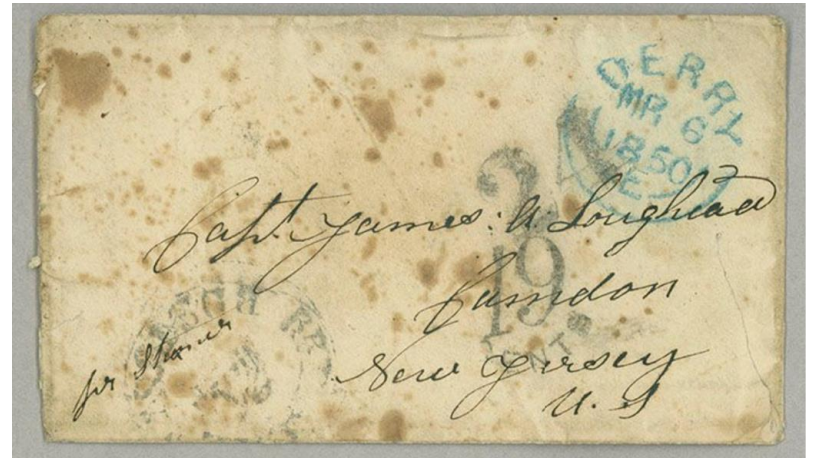 DERRY
MR 6
1850
E
24
Capt. James. A. Loughead
19
Camdon
CENTS
New Jersey
U. S
pr Steamer